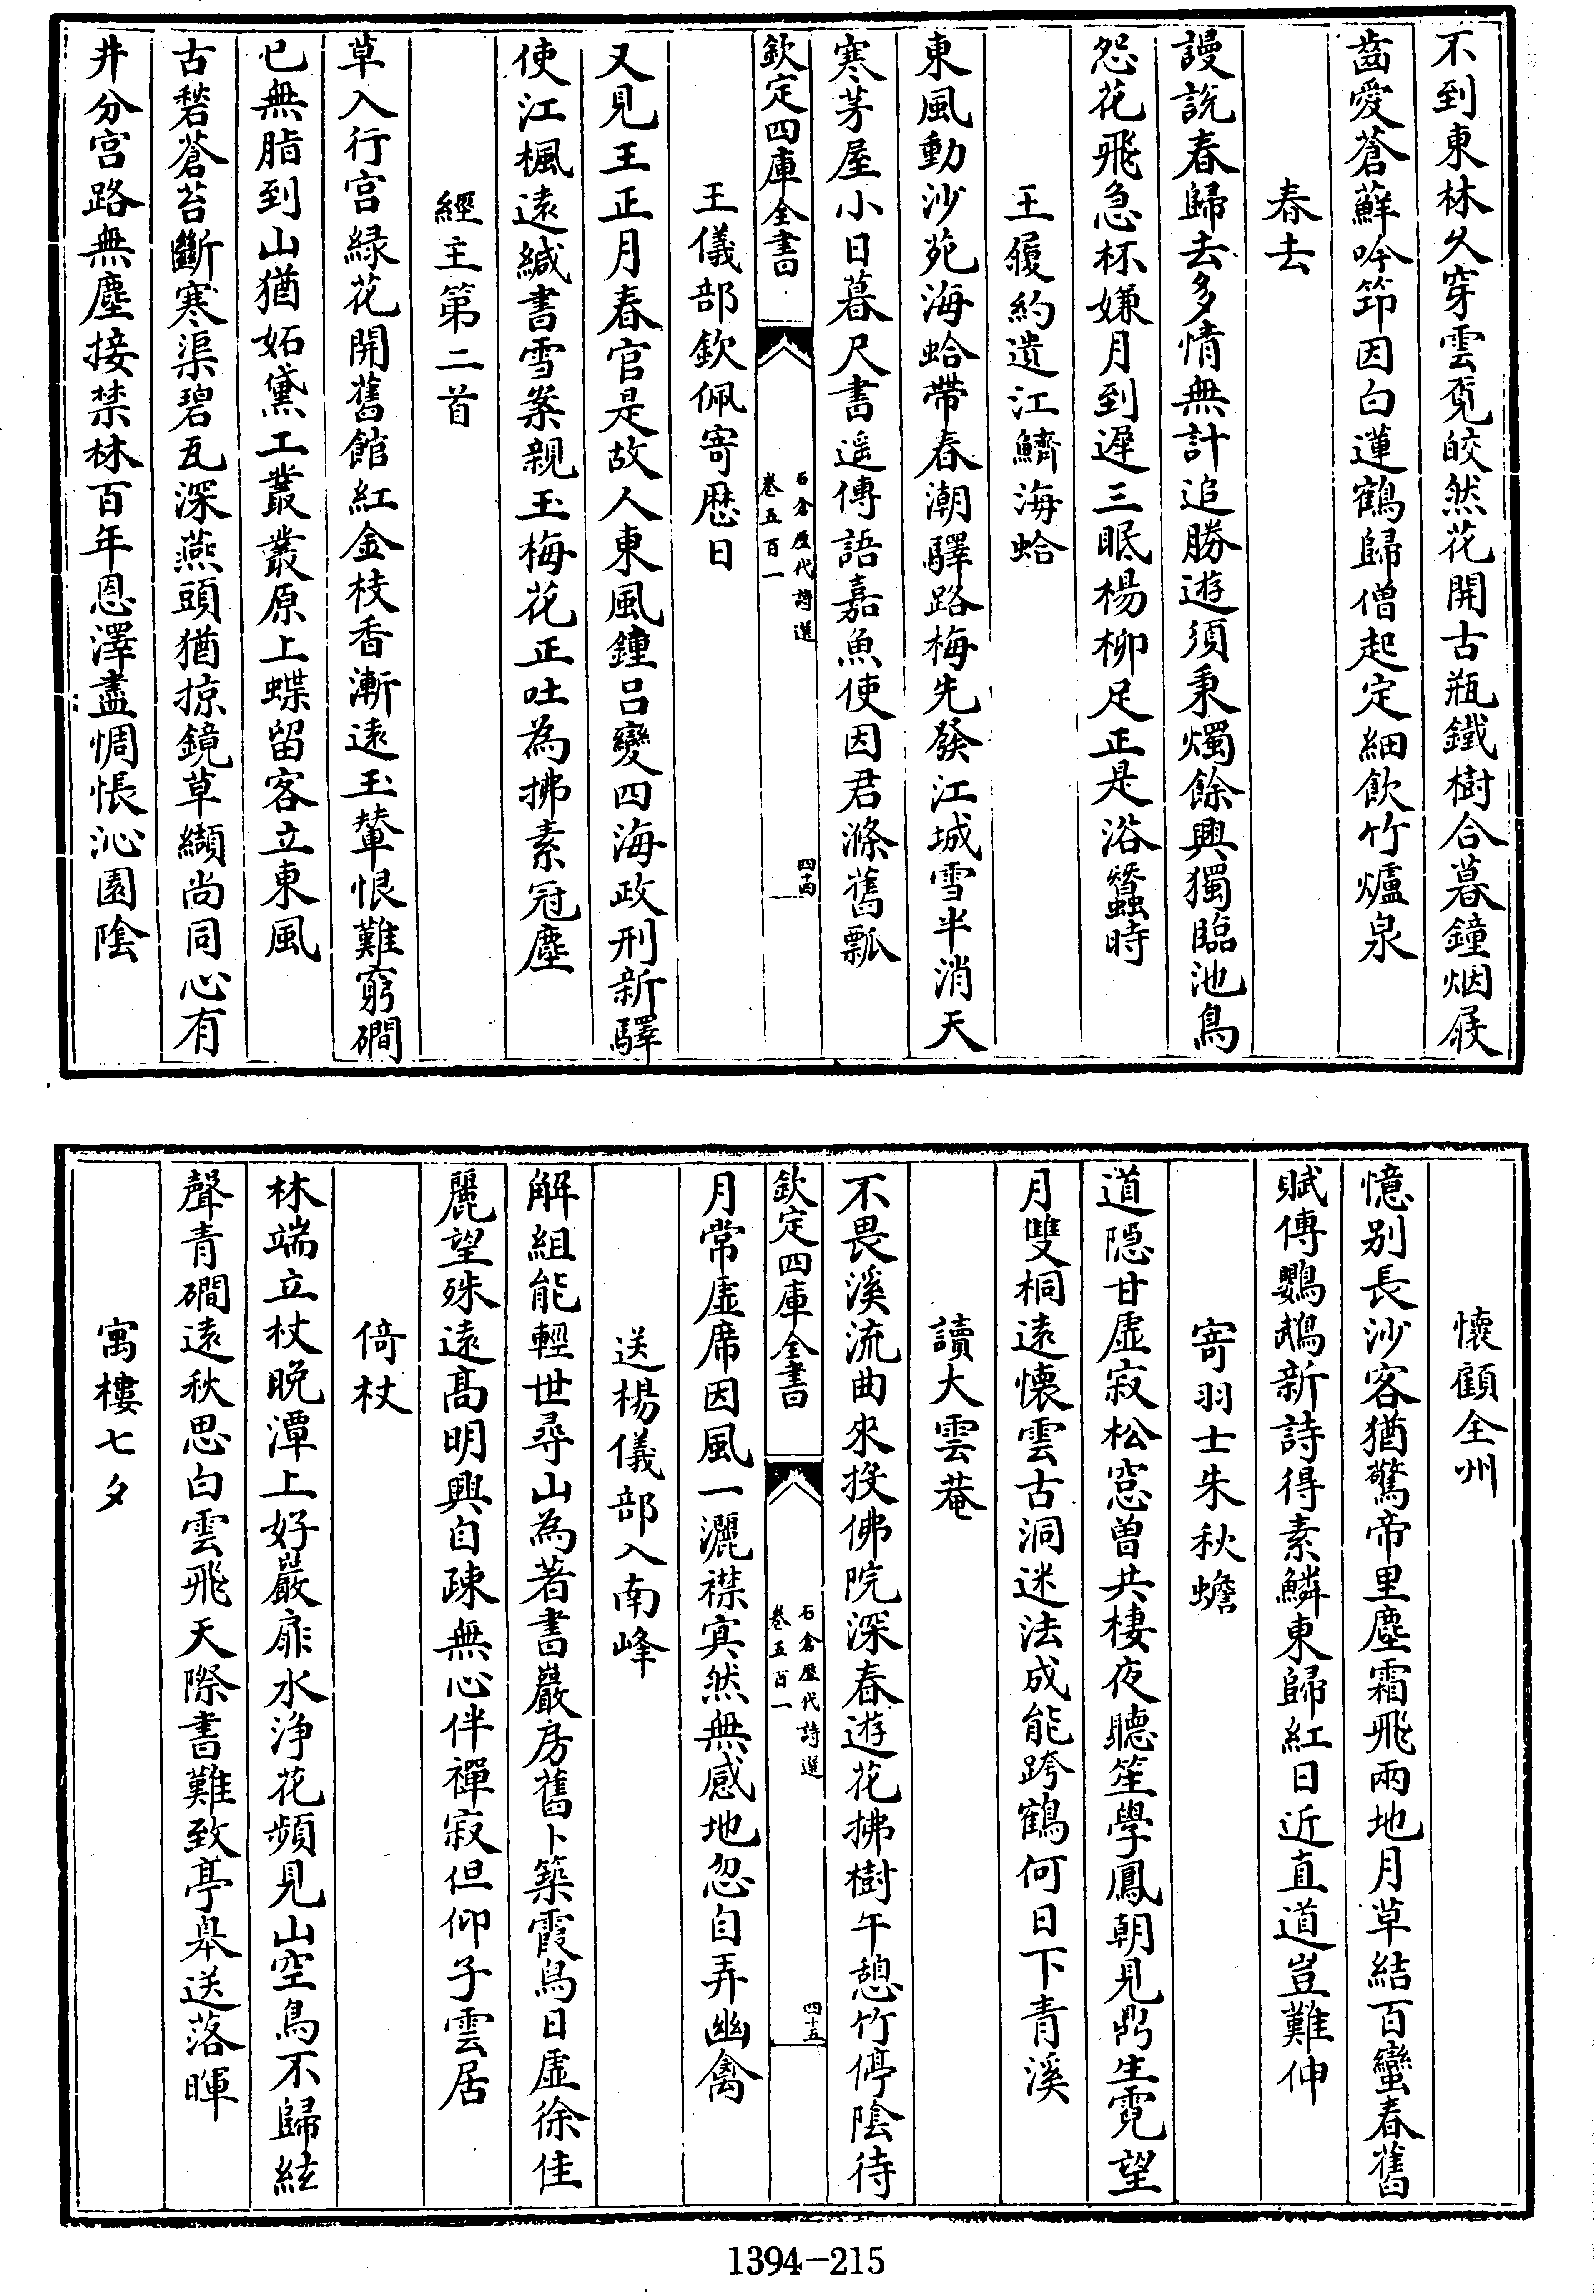 不到東林久穿雲覓皎然花開古瓶鐵樹合暮鐘烟屐
齒愛蒼蘚吟笻因白蓮鶴歸僧起定細飲竹爐泉
春去
謾說春歸去多情無計追勝遊須秉燭餘興獨臨池鳥
怨花飛急杯嫌月到遲三眠楊柳足正是浴蠶時
王履約遺江鱭海蛤
東風動沙苑海蛤帶春潮驛路梅先發江城雪半消天
寒茅屋小日暮尺書遥傳語嘉魚使因君滌舊瓢
欽定四庫全書
石倉歷代詩選
卷五百一
四十四
王儀部欽佩寄厯日
又見王正月春官是故人東風鐘呂變四海政刑新驛
使江楓遠緘書雪案親玉梅花正吐為拂素冠塵
經主第二首
草入行宮緑花開舊館紅金枝香漸遠玉輦恨難窮磵
已無脂到山猶妬黛工叢叢原上蝶留客立東風
古甃蒼苔斷寒渠碧瓦深燕頭猶掠鏡草纈尚同心有
井分宫路無塵接禁林百年恩澤盡惆悵沁園陰
懷顧全州
憶别長沙客猶驚帝里塵霜飛兩地月草結百蠻春舊
賦傳鸚鵡新詩得素鱗東歸紅日近直道豈難伸
寄羽士朱秋蟾
道隠甘虚寂松窓曽共棲夜聽笙學鳳朝見鼎生霓望
月雙桐遠懷雲古洞迷法成能跨鶴何日下青溪
讀大雲菴
不畏溪流曲來投佛院深春遊花拂樹午憩竹停陰待
欽定四庫全書
石倉歷代詩選
卷五百一
四十五
月常虛席因風一灑襟寘然無感地忽自弄幽禽
送楊儀部入南峰
解組能輕世尋山為著書巖房舊卜築霞鳥日虚徐佳
麗望殊遠高明興自疎無心伴禪寂但仰子雲居
倚杖
林端立杖晩潭上好巖扉水浄花頻見山空鳥不歸絃
聲青磵遠秋思白雲飛天際書難致亭皋送落暉
寓樓七夕
1394-215